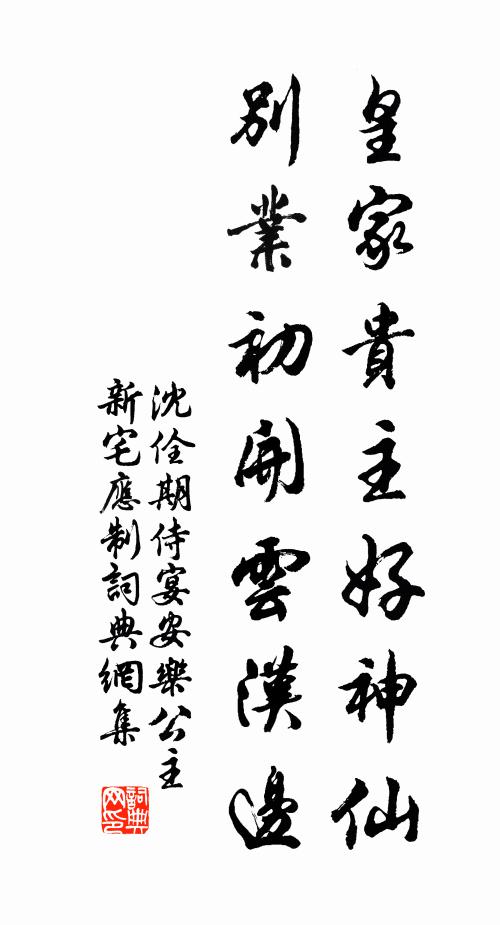 皇家貴主好神仙
別業初開雲漢邊
沈佺期侍宴安樂公主
新宅應制詞典網集
詞典網印